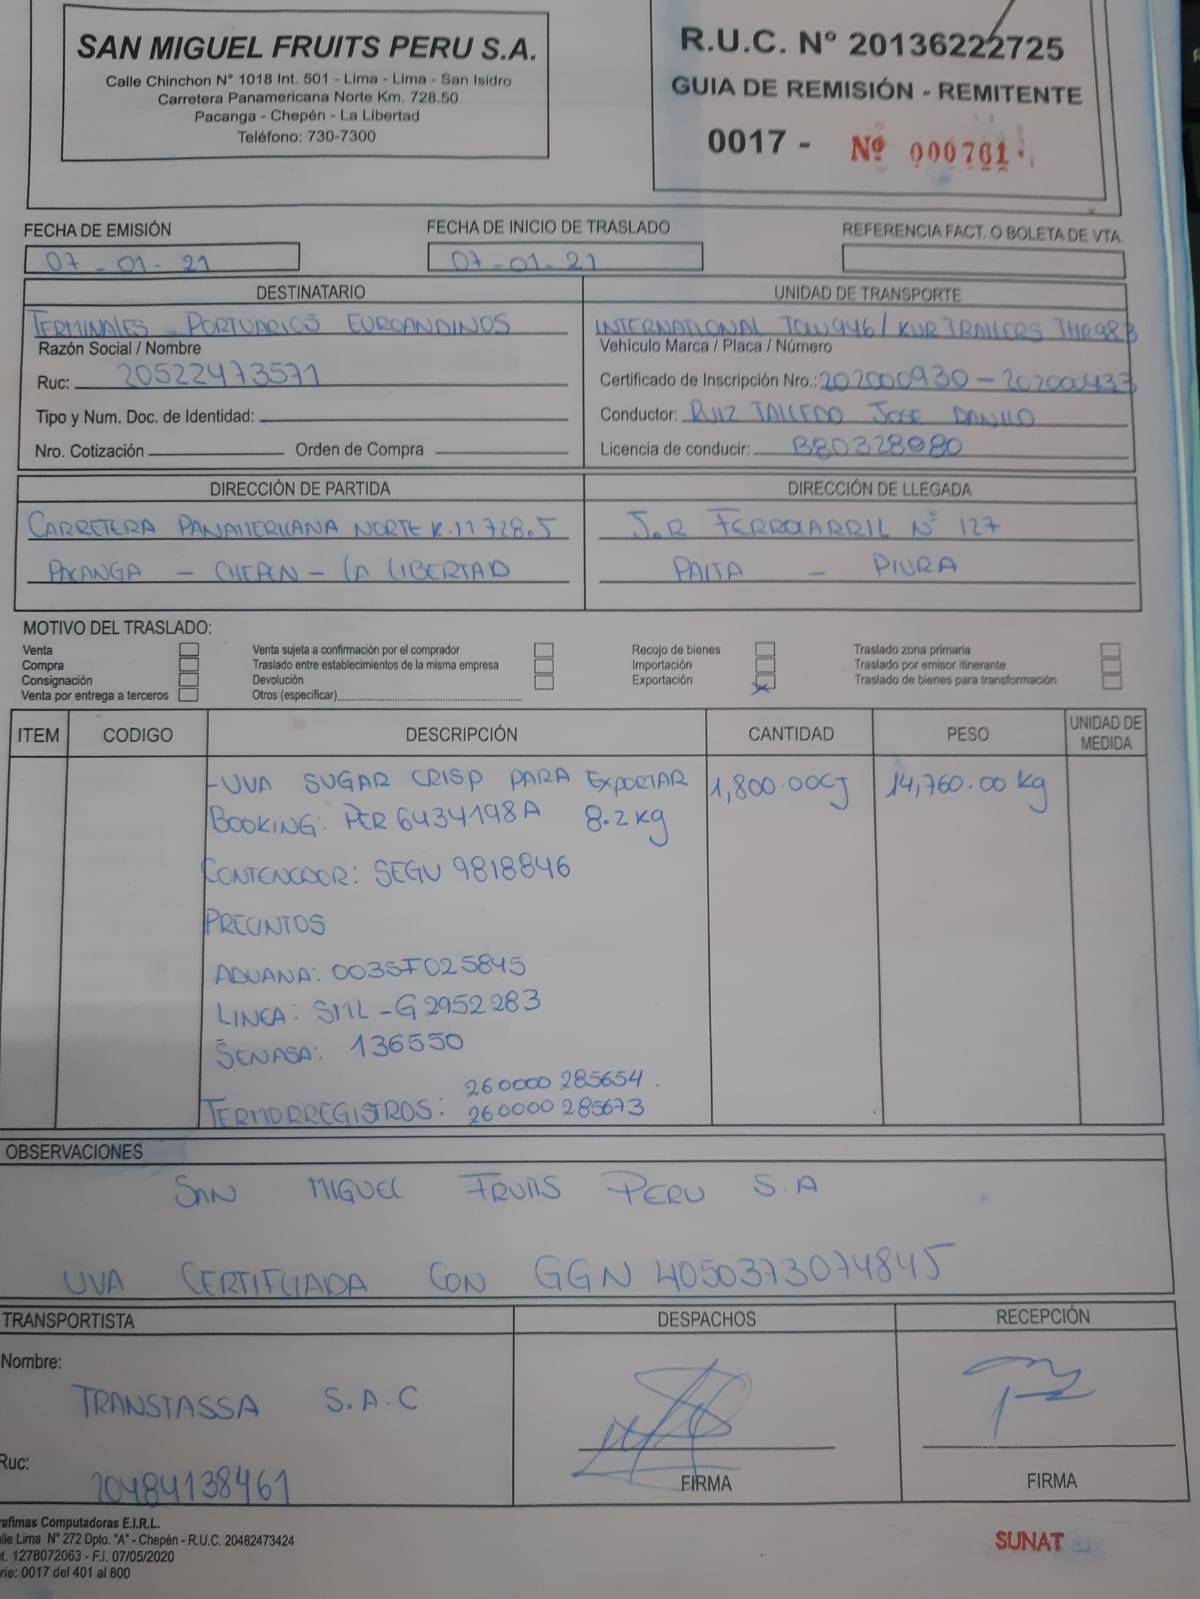 SAN MIGUEL FRUITS PERU S.A.
Calle Chinchon N° 1018 Int. 501 - Lima - Lima - San Isidro
Carretera Panamericana Norte Km. 728.50
Pacanga - Chepén - La Libertad
Teléfono: 730-7300
R.U.C. N° 20136222725
GUIA DE REMISIÓN - REMITENTE
0017 - Nº 000761
FECHA DE EMISIÓN
07-01-21
FECHA DE INICIO DE TRASLADO
07-01-21
REFERENCIA FACT. O BOLETA DE VTA.
DESTINATARIO
TERMINALES PORTUARIOS EUROANDINOS
Razón Social / Nombre
Ruc: 20522473571
Tipo y Num. Doc. de Identidad:
Nro. Cotización Orden de Compra
UNIDAD DE TRANSPORTE
INTERNATIONAL TOW946 / KUR TRAILERS THR983
Vehículo Marca / Placa / Número
Certificado de Inscripción Nro.: 202000930 - 202000433
Conductor: RUIZ TALLEDO JOSE DANILO
Licencia de conducir: B80328080
DIRECCIÓN DE PARTIDA
CARRETERA PANAMERICANA NORTE K.M 728.5
PACANGA - CHEPEN - LA LIBERTAD
DIRECCIÓN DE LLEGADA
J.R FERROCARRIL N° 127
PAITA - PIURA
MOTIVO DEL TRASLADO:
Venta
Compra
Consignación
Venta por entrega a terceros
Venta sujeta a confirmación por el comprador
Traslado entre establecimientos de la misma empresa
Devolución
Otros (especificar)
Recojo de bienes
Importación
Exportación X
Traslado zona primaria
Traslado por emisor itinerante
Traslado de bienes para transformación
ITEM CODIGO DESCRIPCIÓN CANTIDAD PESO UNIDAD DE MEDIDA
-UVA SUGAR CRISP PARA EXPORTAR 1,800.00CJ 14,760.00 kg
BOOKING: PER 6434198A 8.2 kg
CONTENEDOR: SEGU 9818846
PRECINTOS
ADUANA: 003SF025845
LINEA: SML-G2952283
SENASA: 136550
260000 285654.
TERMORREGISTROS: 260000 285673
OBSERVACIONES
SAN MIGUEL FRUITS PERU S.A
UVA CERTIFICADA CON GGN 4050373074845
TRANSPORTISTA
Nombre:
TRANSTASSA S.A.C
Ruc:
20484138461
DESPACHOS
FIRMA
RECEPCIÓN
FIRMA
rafimas Computadoras E.I.R.L.
alle Lima N° 272 Dpto. "A" - Chepén - R.U.C. 20482473424
t. 1278072063 - F.I. 07/05/2020
rie: 0017 del 401 al 800
SUNAT